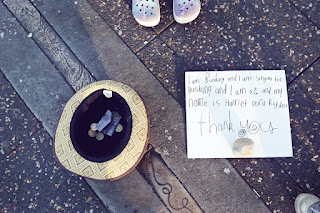 I am Busking and I am singing for
Busking and I am 8½ and my
name is Harriet Dora Ryder
thank you